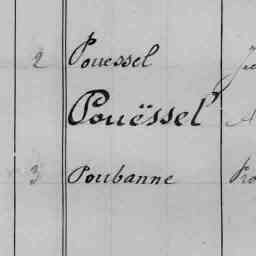 2 Pouessel
Pouëssel
3 Poubanne